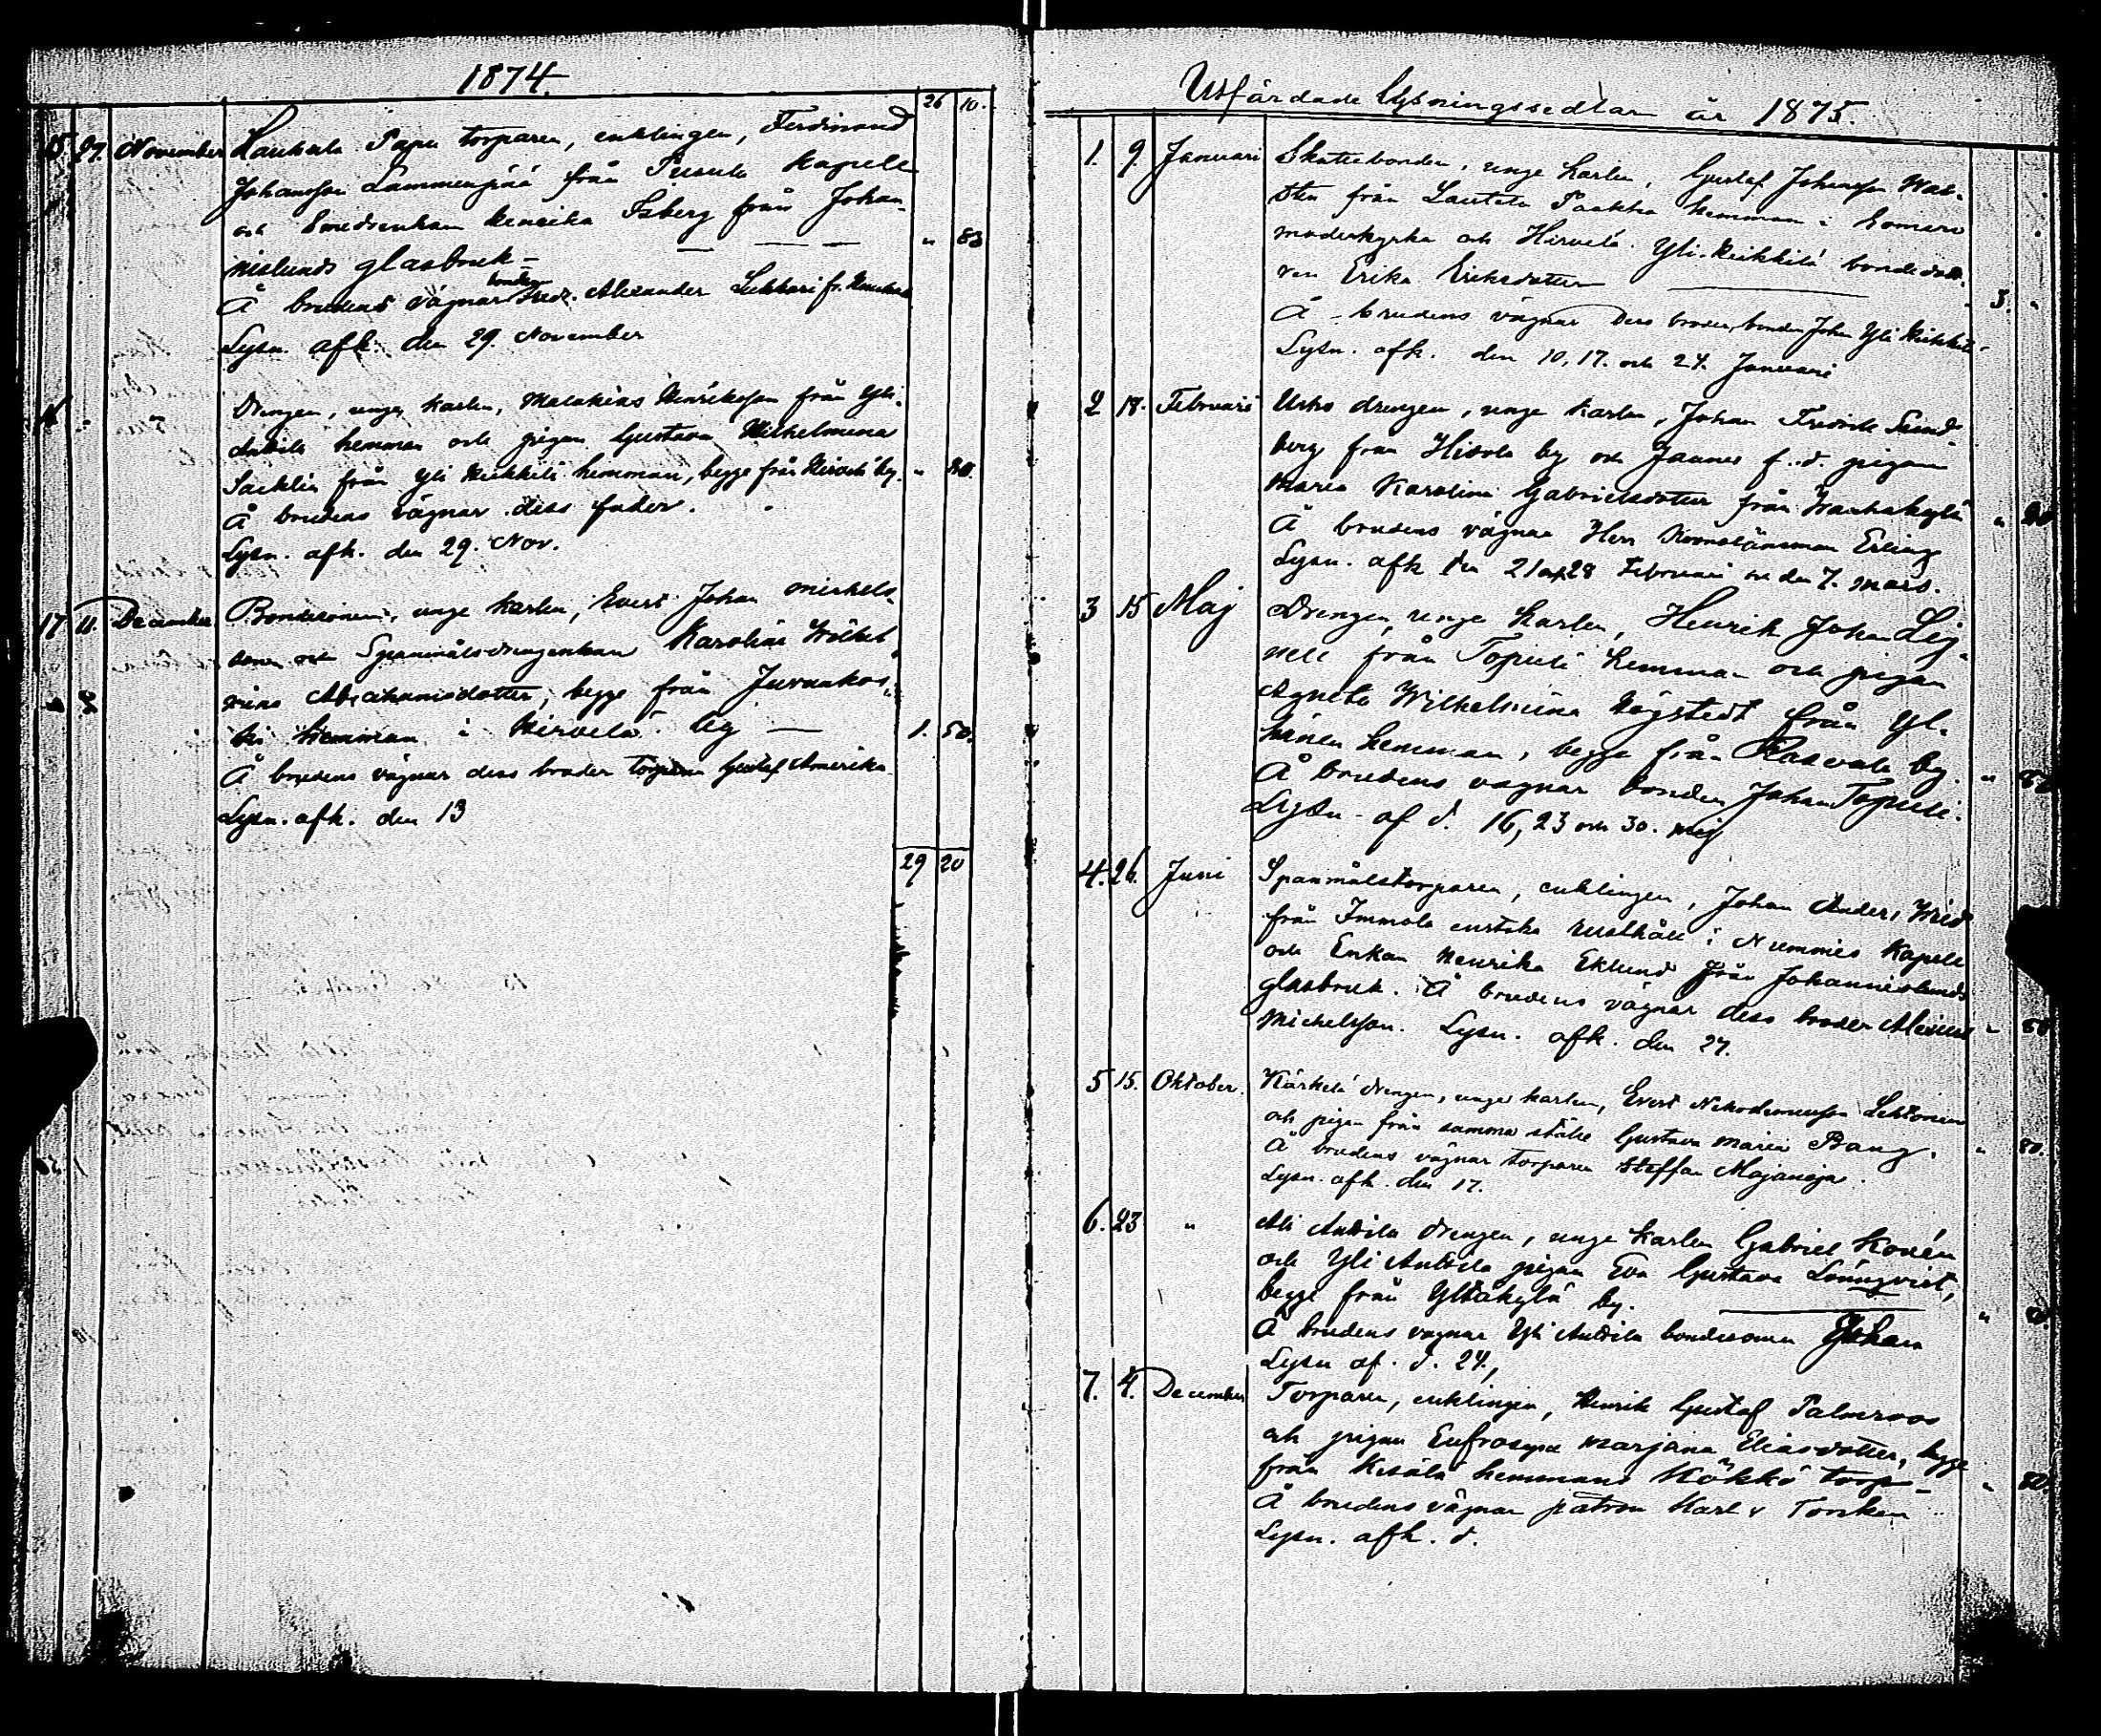 1874.
26 10.
15 27. November Haukula Papu torparen, enklingen, Ferdinand
Johansson Lammenpää från Pusula Kapell
och Smedsenkan Henrika Isberg från Johan-
nislunds glasbruk — " 83
Å brudens vägnar bonden Fredr. Alexander Lukkari fr.
Lysn. afk. den 29. November
16 " " Drengen, unge karlen, Malakias Henriksson från Yli-
Anttila hemman och pigan Gustava Wilhelmina
från Yli Keikkilä hemman, begge från Hirvelä by. " 80.
Å brudens vägnar dess fader.
Lysn. afk. den 29. Nov.
17 11. December Bondesonen, unge karlen, Evert Johan Michels-
son och Spanmålsdrengenkan Karolina Wilhel-
mina Abrahamsdotter, begge från Juvankos-
ki hemman i Hirvelä by — 1. 50.
Å brudens vägnar dess broder torparen Gustaf Amerika
Lysn. afk. den 13
29 20
Utfärdade Lysningssedlar år 1875.
1. 9. Januari Skattebonden, unge karlen, Gustaf Johansson Wah-
sten från Lautela Paakka hemman i Somero
moderkyrka och Hirvelä Yli-Keikkilä bondedott-
ren Erika Eriksdotter — 3. "
Å brudens vägnar Dess broder, bonden Johan Yli Keikkilä
Lysn. afk. den 10, 17. och 24. Januari
2 18. Februari drengen, unge karlen, Johan Fredrik Sund-
berg från by och f. d. pigan
Maria Karolina Gabrielsdotter från Wanhakylä " 80
Å brudens vägnar Herr Kronolänsman Erling
Lysn. afk den 21 och 28 Februari och den 7. Mars.
3 15 Maj Drengen, unge karlen, Henrik Johan Lig-
nell från Topuli hemman och pigan
Agneta Wilhelmina Högstedt från Yl-
hänen hemman, begge från Kaskala by. " 80
Å brudens vägnar bonden Johan Topuli.
Lysn. af d. 16, 23 och 30. Maj
4. 26. Juni Spanmålstorparen, enklingen, Johan Anders
från Immola enstaka rusthåll i Nummis Kapell
och Enkan Henrika Eklund från Johannislunds
glasbruk. Å brudens vägnar dess broder " 80
Michelsson. Lysn. afk. den 27.
5 15. Oktober. Kärkelä drengen, unge karlen, Evert Nikodemusson Lehtonen
och pigan från samma ställe Gustava Maria Bang. " 80.
Å brudens vägnar torparen Staffan Majaneja.
Lysn. afk. den 17.
6. 23 " Ali Anttila drengen, unge karlen Gabriel Konén
och Yli Anttila pigan Eva Gustava Lönnqvist,
begge från Yltäkylä by. " 80.
Å brudens vägnar Yli Anttila bondesonen Johan
Lysn af. d. 24,
7. 4. December Torparen, enklingen, Henrik Gustaf Palmroos
och pigan Eufrosyna Marjana Eliasdotter, begge
från hemmans Kökkö torp — " 80.
Å brudens vägnar patron Karl v Torcken
Lysn. afk. d.